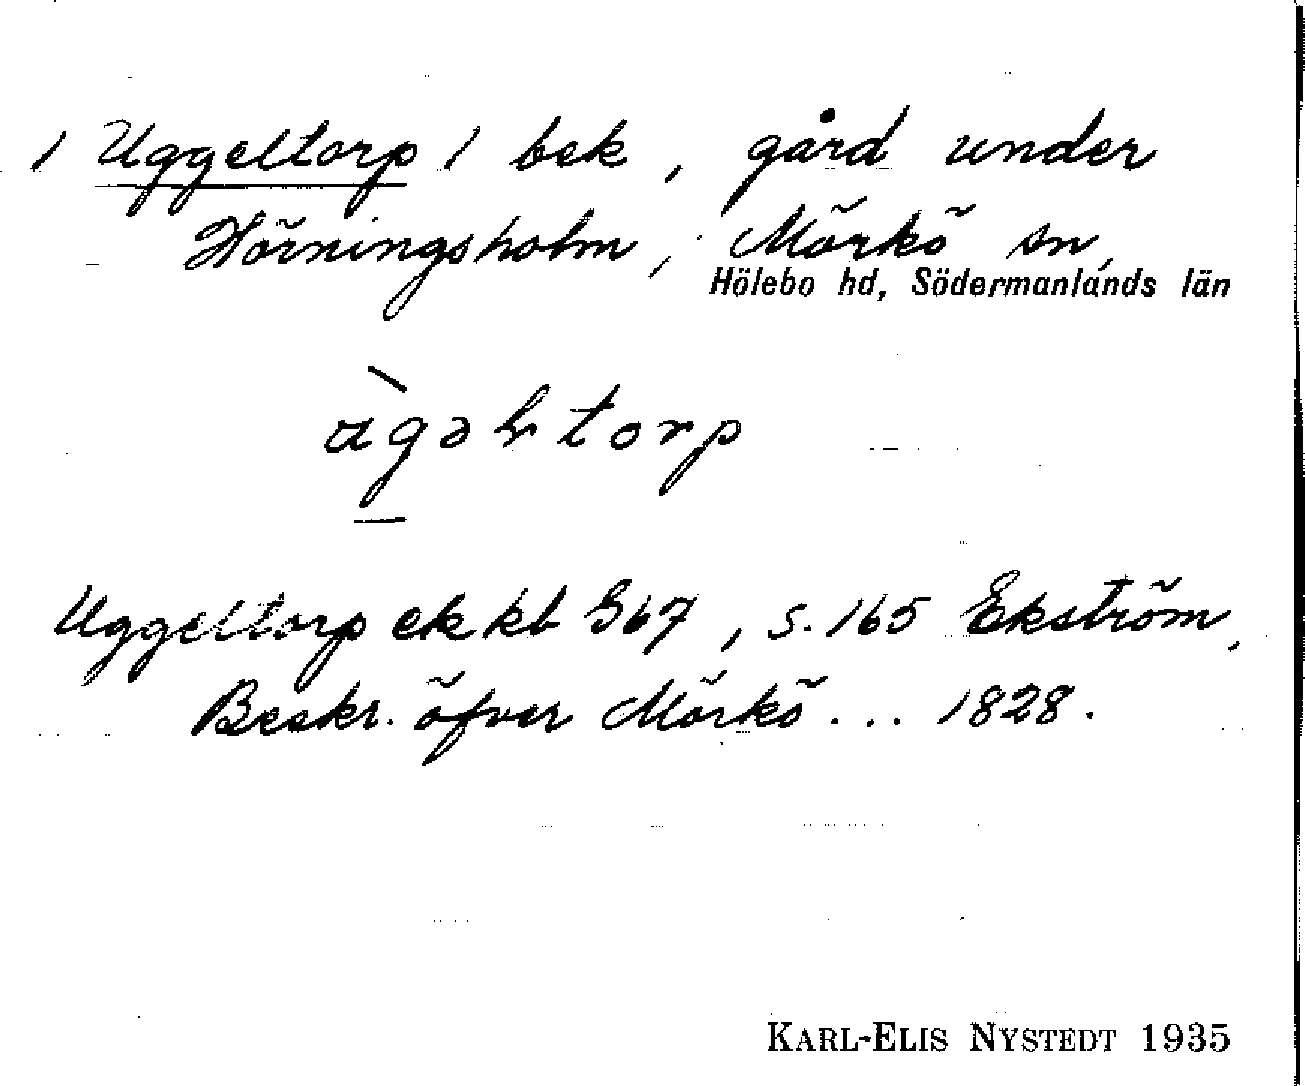 / Uggeltorp / bek, gård under
Hörningsholm, Mörkö sn,
Hölebo hd, Södermanlands län
Uggeltorp ek kb 367, s. 165 Ekström,
Beskr. öfver Mörkö ... 1828.
KARL-ELIS NYSTEDT 1935